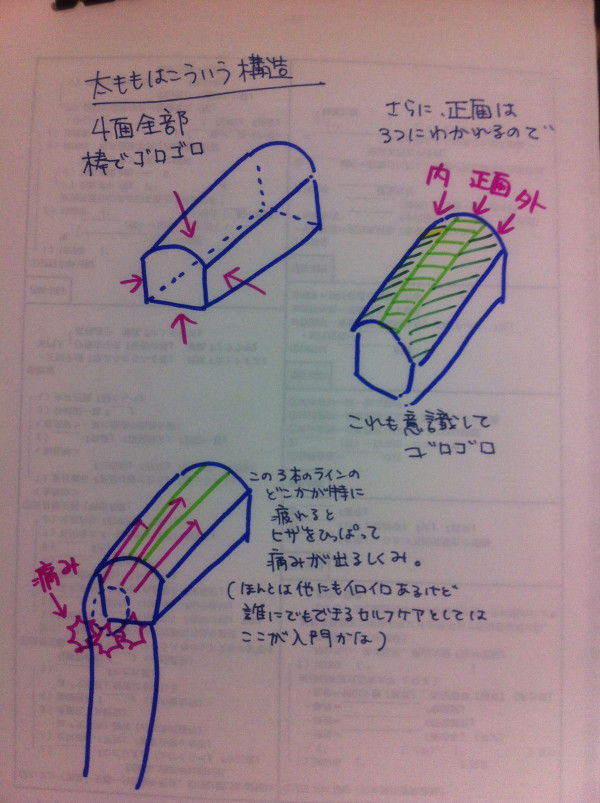 太ももはこういう構造
4面全部
棒でゴロゴロ
さらに、正面は
3つにわかれるので
内 正面 外
これも意識して
ゴロゴロ
この3本のラインの
どこかが特に
疲れると
ヒザをひっぱって
痛みが出るしくみ。
(ほんとは他にもイロイロあるけど
誰にでもできるセルフケアとしては
ここが入門かな)
痛み